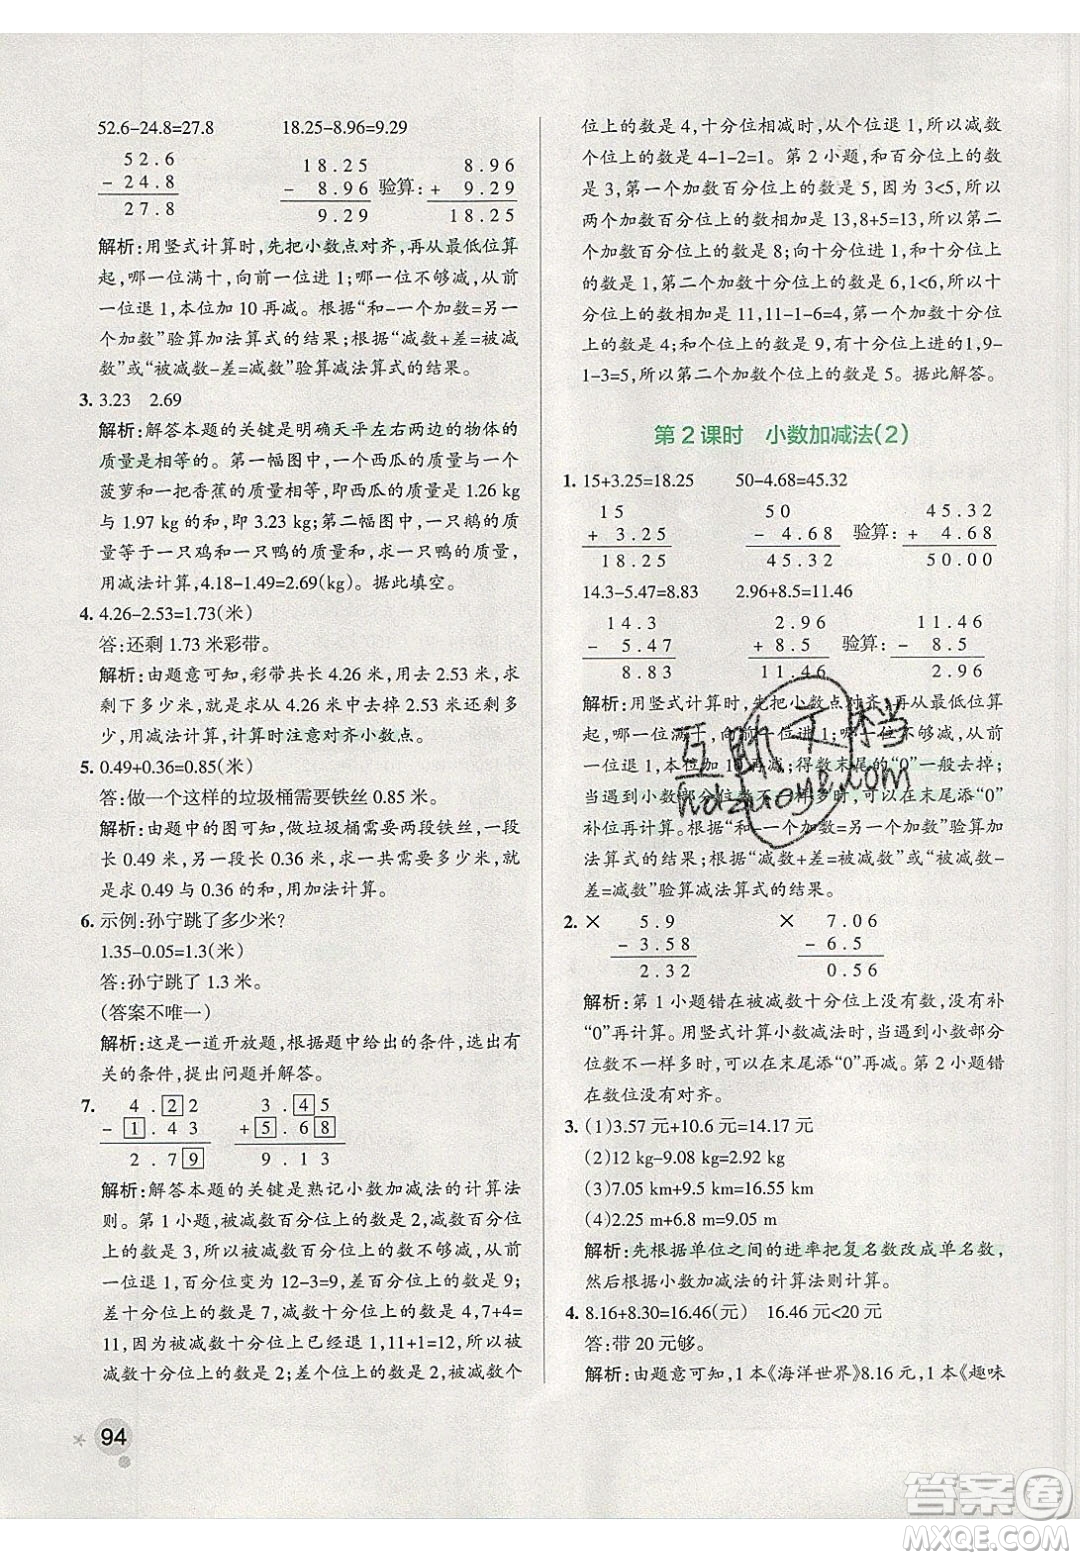 52.6-24.8=27.8 18.25-8.96=9.29
52.6
- 24.8
27.8
18.25
- 8.96
9.29
验算:
8.96
+ 9.29
18.25
解析:用竖式计算时,先把小数点对齐,再从最低位算
起,哪一位满十,向前一位进 1;哪一位不够减,从前
一位退 1,本位加 10 再减。根据“和-一个加数=另一
个加数”验算加法算式的结果;根据“减数+差=被减
数”或“被减数-差=减数”验算减法算式的结果。
3. 3.23 2.69
解析:解答本题的关键是明确天平左右两边的物体的
质量是相等的。第一幅图中,一个西瓜的质量和一个
菠萝和一把香蕉的质量相等,即西瓜的质量是 1.26 kg
与 1.97 kg 的和,即 3.23 kg;第二幅图中,一只鹅的质
量等于一只鸡和一只鸭的质量和,求一只鸭的质量,
用减法计算,4.18-1.49=2.69(kg)。据此填空。
4. 4.26-2.53=1.73(米)
答:还剩 1.73 米彩带。
解析:由题意可知,彩带共长 4.26 米,用去 2.53 米,求
剩下多少米,就是求 4.26 米中去掉 2.53 米还剩多
少,用减法计算,计算时注意对齐小数点。
5. 0.49+0.36=0.85(米)
答:做一个这样的垃圾桶需要铁丝 0.85 米。
解析:由题中的图可知,做垃圾桶需要两段铁丝,一段
长 0.49 米,另一段长 0.36 米,求一共需要多少米,就
是求 0.49 与 0.36 的和,用加法计算。
6. 示例:孙宁跳了多少米?
1.35-0.05=1.3(米)
答:孙宁跳了 1.3 米。
(答案不唯一)
解析:这是一道开放题,根据题中给出的条件,选择相
关的条件,提出问题并解答。
7. 4.22 3.45
- 1.43 + 5.68
2.79 9.13
解析:解答本题的关键是熟记小数加减法的计算法
则。第 1 小题,被减数百分位上的数是 2,减数百分位
上的数是 3,所以被减数百分位上的数不够减,从前
一位退 1,百分位变为 12-3=9,所以差百分位上是 9;
差十分位上的数是 7,减数十分位上的数是 4,7+4=
11,因为被减数十分位上已经退 1,11+1=12,所以被
减数十分位上的数是 2;差个位上的数是 2,被减数个
94
位上的数是 4,十分位相减时,从个位退 1,所以减数
个位上的数是 4-1-2=1。第 2 小题,和百分位上的数
是 3,第一个加数百分位上的数是 5,因为 3<5,所以
两个加数百分位上的数相加是 13,8+5=13,所以第二
个加数百分位上的数是 8;向十分位进 1,和十分位上
是 1,第二个加数十分位上的数是 6,1<6,所以十分
位上的和是 11,11-1-6=4,第一个加数十分位上的
数是 4;和个位上的数是 9,有十分位上进的 1,9-
1-3=5,所以第二个加数个位上的数是 5。据此解答。
第 2 课时 小数加减法(2)
1. 15+3.25=18.25 50-4.68=45.32
15
+ 3.25
18.25
50
- 4.68
45.32
验算:
45.32
+ 4.68
50.00
14.3-5.47=8.83 2.96+8.5=11.46
14.3
- 5.47
8.83
2.96
+ 8.5
11.46
验算:
11.46
- 8.5
2.96
解析:用竖式计算时,先把小数点对齐,再从最低位算
起,哪一位满十,向前一位进 1,哪一位不够减,从前
一位退 1,本位加 10 再减;得数末尾的“0”一般去掉;
当遇到小数部分位数不一样多时,可以在末尾添“0”
补位再计算。根据“和-一个加数=另一个加数”验算加
法算式的结果;根据“减数+差=被减数”或“被减数-
差=减数”验算减法算式的结果。
2. × 5.9 × 7.06
- 3.58 - 6.5
2.32 0.56
解析:第 1 小题错在被减数十分位上没有数,没有补
“0”再计算。用竖式计算小数减法时,当遇到小数部分
位数不一样多时,可以在末尾添“0”再减。第 2 小题错
在数位没有对齐。
3. (1)3.57 元+10.6 元=14.17 元
(2)12 kg-9.08 kg=2.92 kg
(3)7.05 km+9.5 km=16.55 km
(4)2.25 m+6.8 m=9.05 m
解析:先根据单位之间的进率把复名数改成单名数,
然后根据小数加减法的计算法则计算。
4. 8.16+8.30=16.46(元) 16.46 元<20 元
答:带 20 元够。
解析:由题意可知,1 本《海洋世界》8.16 元,1 本《趣味
互助文档
hdzuoye.com
答案圈
MXQE.COM